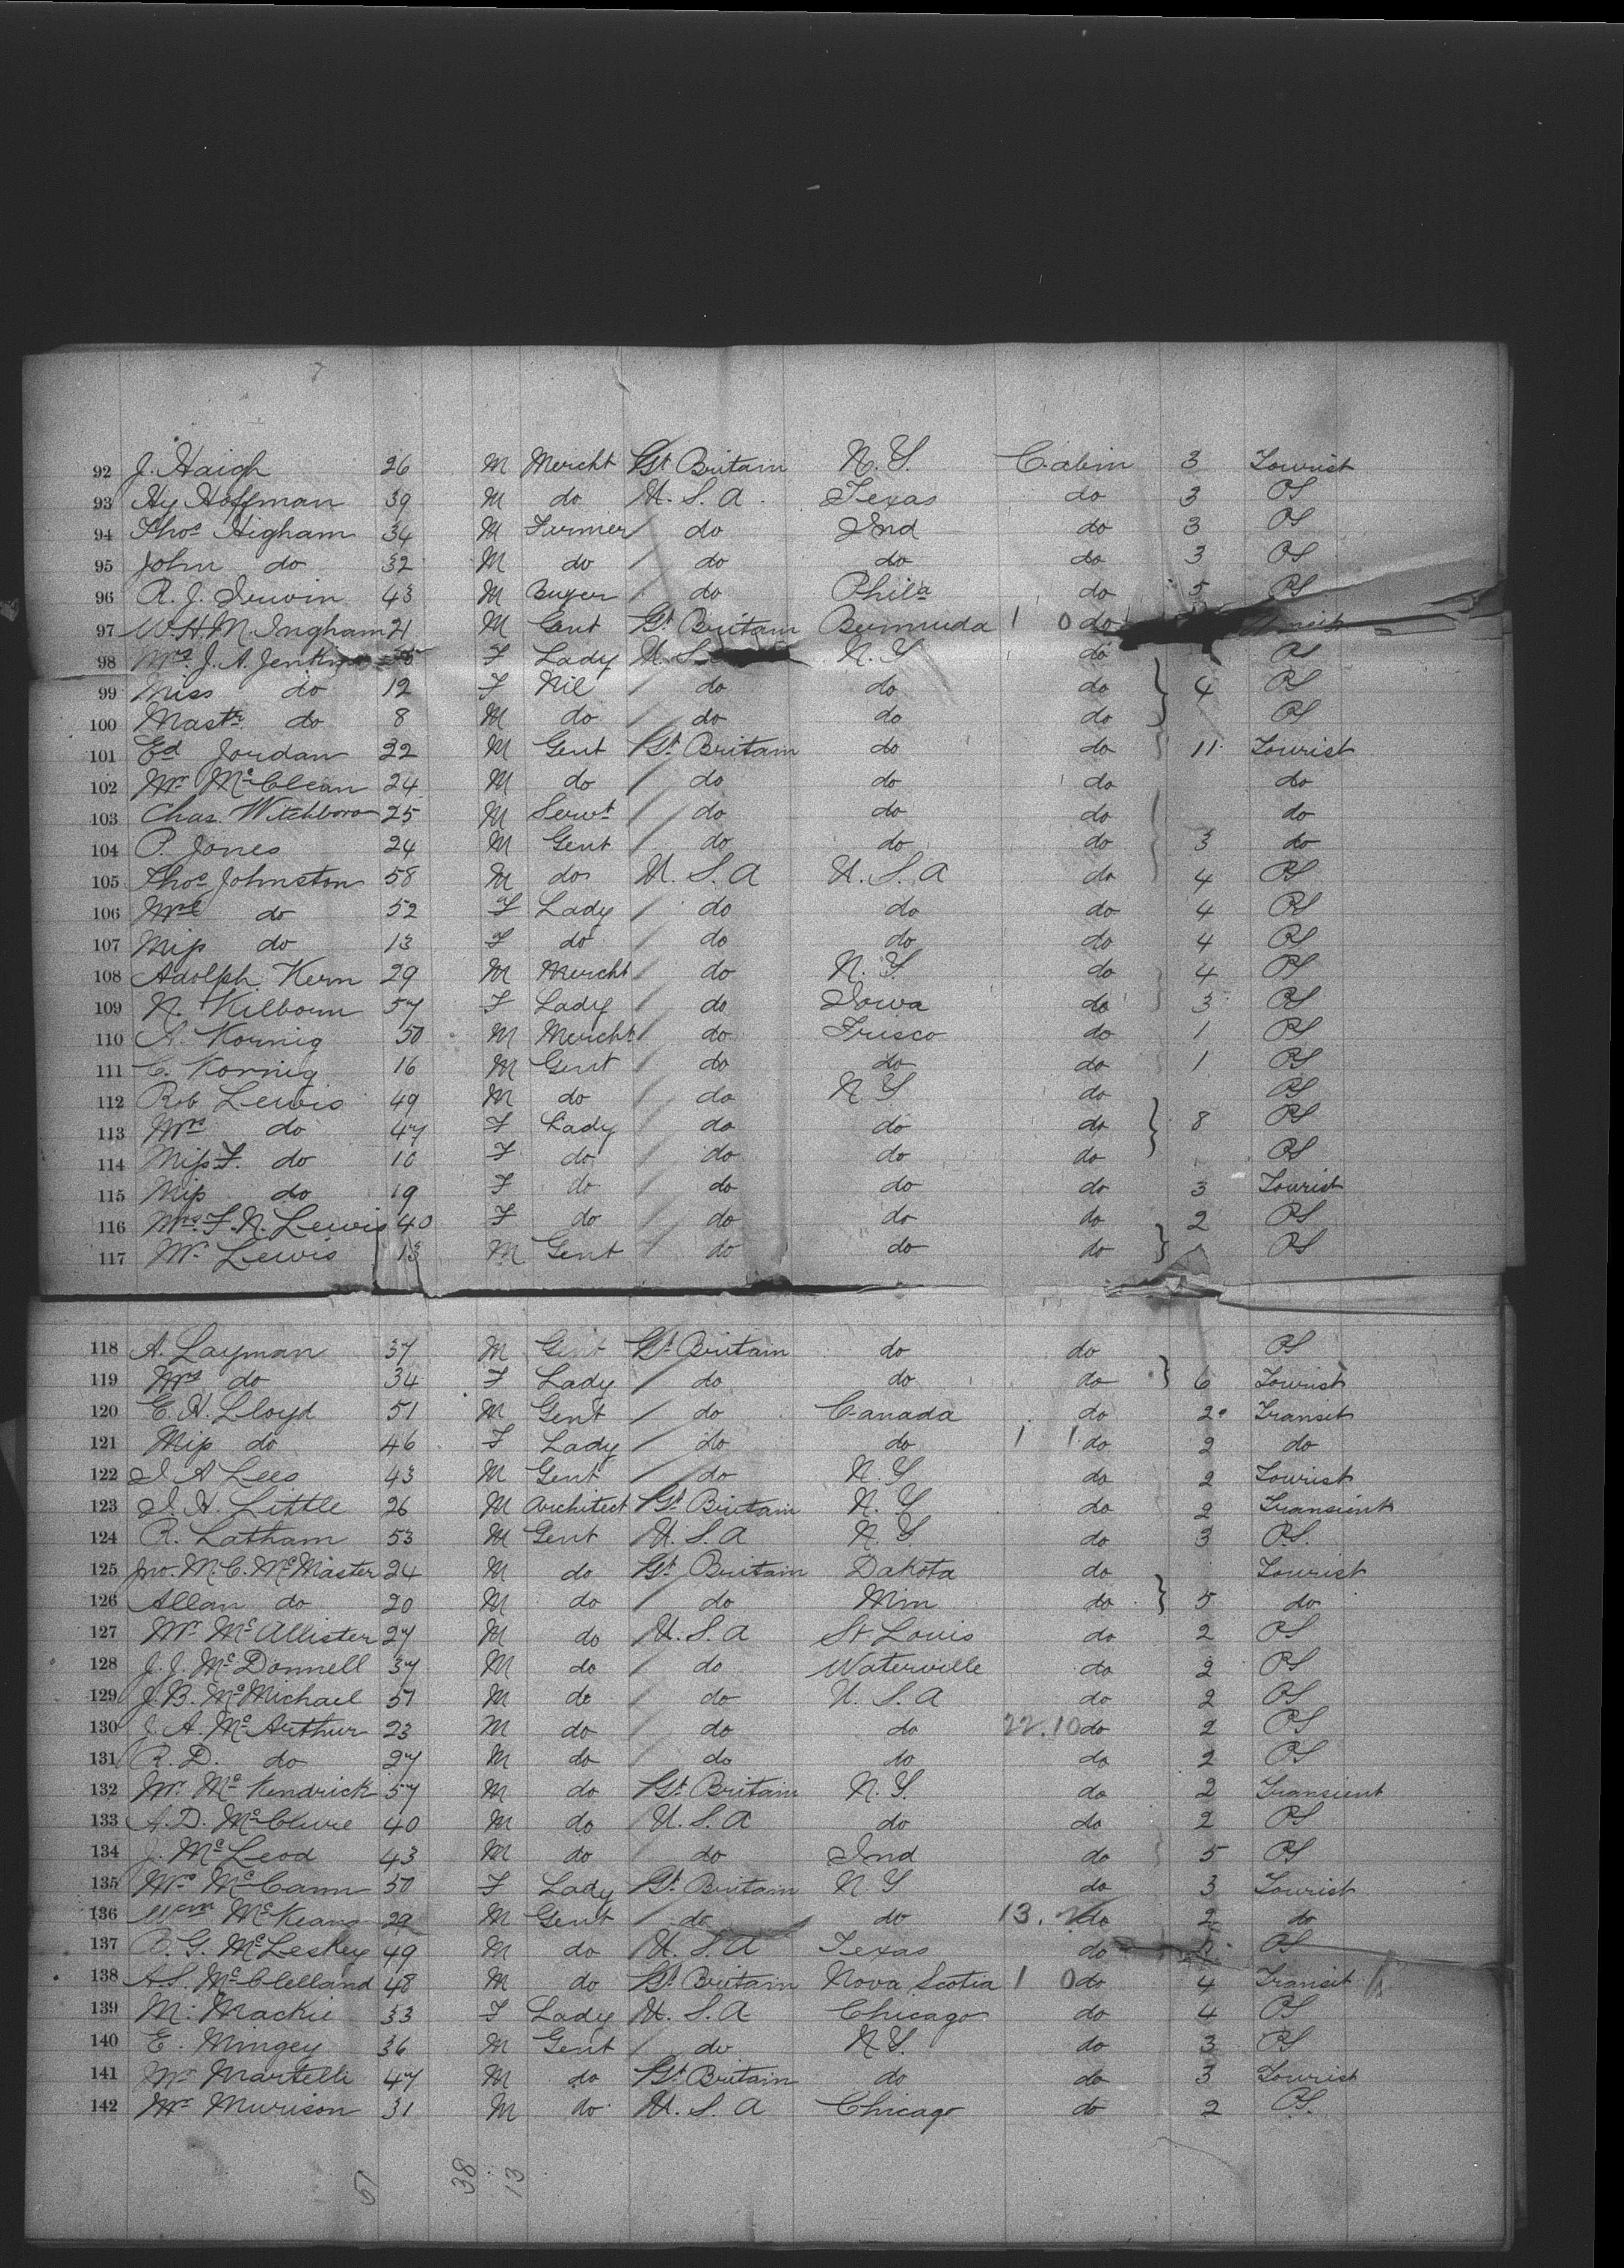 92 J. Haigh 26 M Mercht Gt Britain N.Y. Cabin 3 Tourist
93 Hy Hoffman 39 M do U.S.A. Texas do 3 PS
94 Thos Higham 34 M Farmer do Ind do 3 PS
95 John do 32 M do do do do 3 PS
96 R. J. Irwin 43 M Buyer do Phila do 5 PS
97 W.H.M. Ingham 21 M Gent Gt Britain Bermuda 1 0 do
98 Mrs. J. A. F Lady U.S. N.Y do PS
99 Miss do 12 F Nil do do do 4 PS
100 Mastr do 8 M do do do do PS
101 Ed Jordan 22 M Gent Gt Britain do do 11 Tourist
102 Mr McClean 24 M do do do do do
103 Chas. Witchboro 25 M Servt do do do do
104 P. Jones 24 M Gent do do do 3 do
105 Thos Johnston 58 M do U.S.A U.S.A do 4 PS
106 Mrs do 52 F Lady do do do 4 PS
107 Miss do 13 F do do do do 4 PS
108 Adolph Kern 29 M Mercht do N.Y. do 4 PS
109 N. Kilborn 57 F Lady do Iowa do 3 PS
110 A. Kornig 50 M Mercht do Frisco do 1 PS
111 C. Kornig 16 M Gent do do do 1 PS
112 Rob Lewis 49 M do do N.Y do PS
113 Mrs do 47 F Lady do do do 8 PS
114 Miss F. do 10 F do do do do PS
115 Miss do 19 F do do do do 3 Tourist
116 Mrs. F. N. Lewis 40 F do do do do 2 PS
117 Mr Lewis 13 M Gent do do do PS
118 A. Layman 37 M Gent Gt Britain do do PS
119 Mrs do 34 F Lady do do do 6 Tourist
120 E. H. Lloyd 51 M Gent do Canada do 2 Transit
121 Miss do 46 F Lady do do 1 1 do 2 do
122 J A Lees 43 M Gent do N.Y do 2 Tourist
123 J. H. Little 26 M Architect Gt Britain N.Y do 2 Transient
124 R. Latham 53 M Gent U.S.A N.Y do 3 P.S.
125 Jno. M. C. McMaster 24 M do Gt Britain Dakota do Tourist
126 Allan do 20 M do do Min do 5 do
127 Mr McAllister 27 M do U.S.A St. Louis do 2 PS
128 J. J. McDonnell 37 M do do Waterville do 2 PS
129 J. B. McMichael 51 M do do U.S.A do 2 PS
130 J. A. McArthur 23 M do do do 22.10 do 2 PS
131 R. D. do 27 M do do do do 2 PS
132 Mr McKendrick 57 M do Gt Britain N.Y. do 2 Transient
133 A. D. McClure 40 M do U.S.A do do 2 PS
134 J. McLeod 43 M do do Ind do 5 PS
135 Mrs McCann 50 F Lady Gt Britain N.Y do 3 Tourist
136 Wm McKeang 29 M Gent do do 13. do 2 do
137 B. G. McLeskey 49 M do U.S.A Texas do PS
138 A.S. McClelland 48 M do Gt Britain Nova Scotia 1 0 do 4 Transit
139 M. Mackie 33 F Lady U.S.A Chicago do 4 PS
140 E. Mingey 36 M Gent do N.Y. do 3 PS
141 Mr Martelli 47 M do Gt Britain do do 3 Tourist
142 Mr Murison 31 M do U.S.A Chicago do 2 P.S.
51 38 13